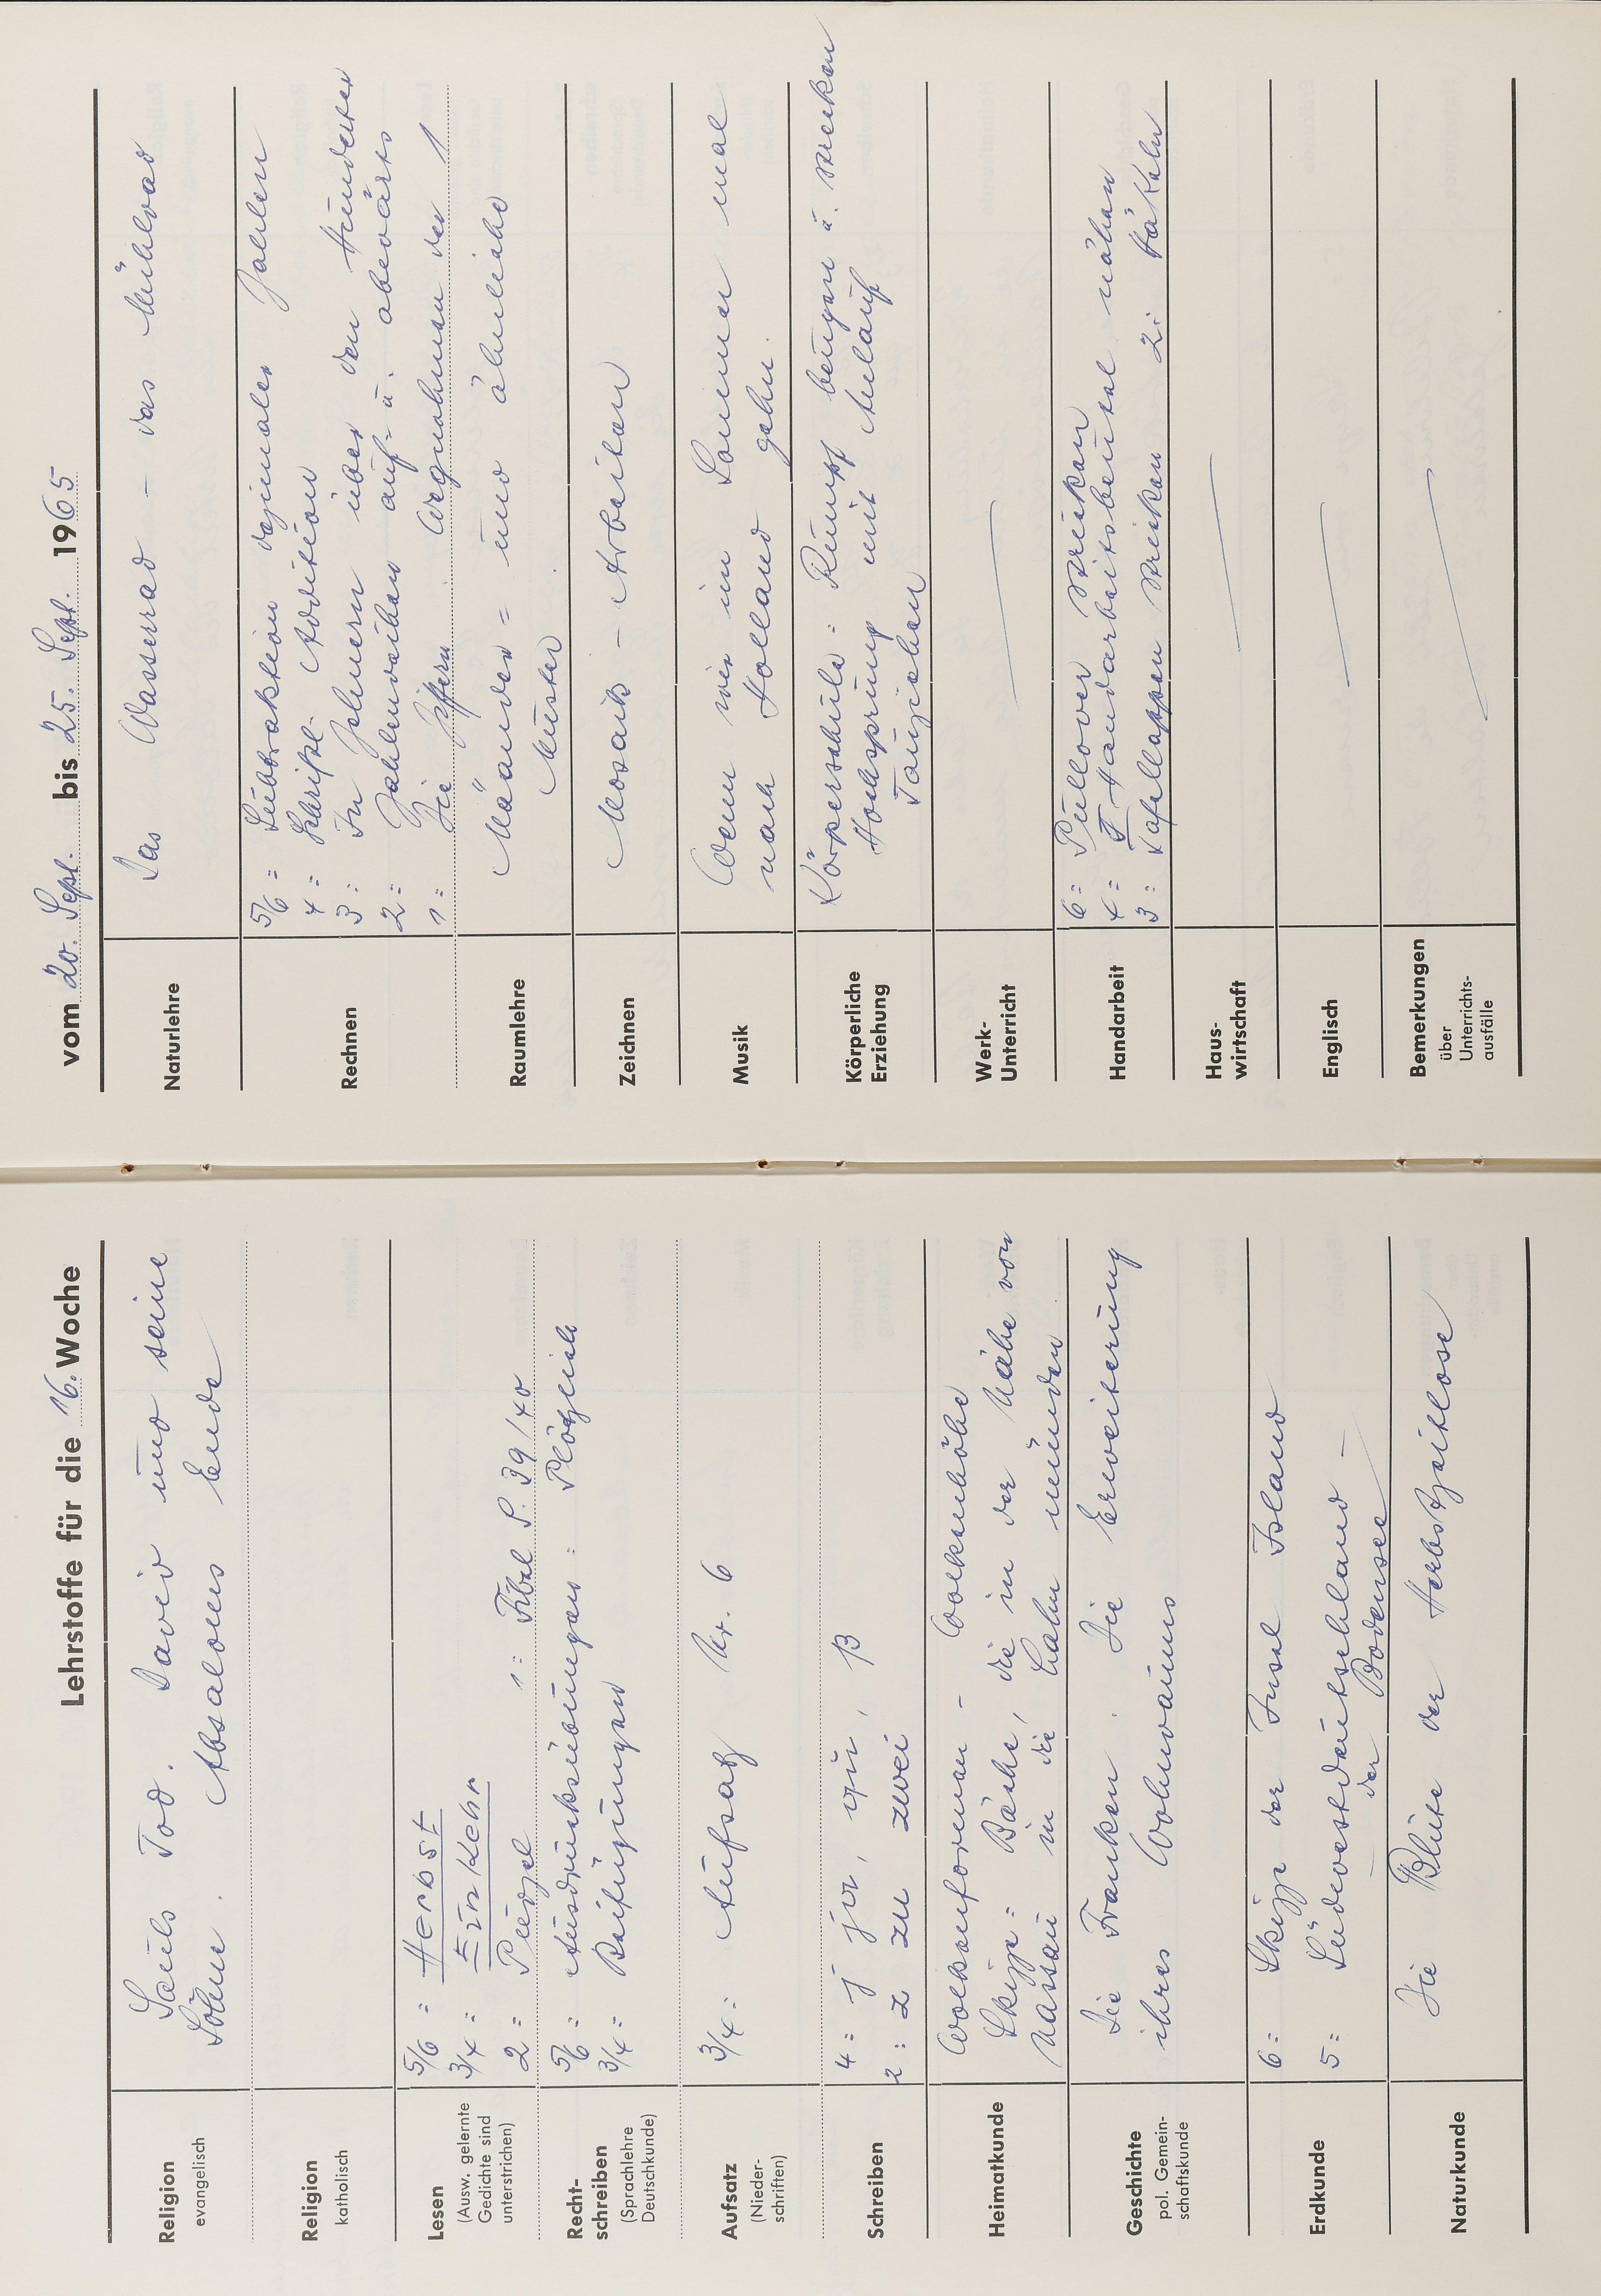 Lehrstoffe für die 16. Woche
Religion
evangelisch
Sauls Tod. David und seine
Söhne. Absaloms Ende
Religion
katholisch
Lesen
(Ausw. gelernte
Gedichte sind
unterstrichen)
5/6 = Herbst
3/4 = Einkehr
2 = 1 = Fibel S. 39/40
Recht-
schreiben
(Sprachlehre
Deutschkunde)
5/6 = Ausdrucksübungen: Plötzlich
3/4 = Beifügungen
Aufsatz
(Nieder-
schriften)
3/4 = Aufsatz Nr. 6
Schreiben
4 = j , qu, ß
2 = z zu zwei
Heimatkunde
Wolkenformen - Wolkenhöhe
Skizze = Bäche, die in der Nähe von
Nassau in die Lahn münden
Geschichte
pol. Gemein-
schaftskunde
Die Franken. Die Erweiterung
ihres Wohnraums
Erdkunde
6 = Skizze der Insel Island
5 = Südwestdeutschland -
- der Bodensee
Naturkunde
Die Blüte der Herbstzeitlose
vom 20. Sept. bis 25. Sept. 1965
Naturlehre
Das Wasserrad - das Mühlrad
Rechnen
5/6 = Subtraktion dezimaler Zahlen
4 = Schriftl. Addition
3 = In Zehnern über den Hunderter
2 = Zahlenreihen auf- u. abwärts
1 = Die Ziffern. Wegnehmen der 1
Raumlehre
Mäander = und ähnliche
Muster
Zeichnen
Mosaik - Arbeiten
Musik
Wenn wir im Sommer mal
nach Holland gehn.
Körperliche
Erziehung
Körperschule: Rumpf beugen u. strecken
Hochsprung mit Anlauf
Tauziehen
Werk-
Unterricht
Handarbeit
6 = Pullover stricken
4 = Handarbeitsbeutel nähen
3 = Topflappen stricken 2: Häkeln
Haus-
wirtschaft
Englisch
Bemerkungen
über
Unterrichts-
ausfälle